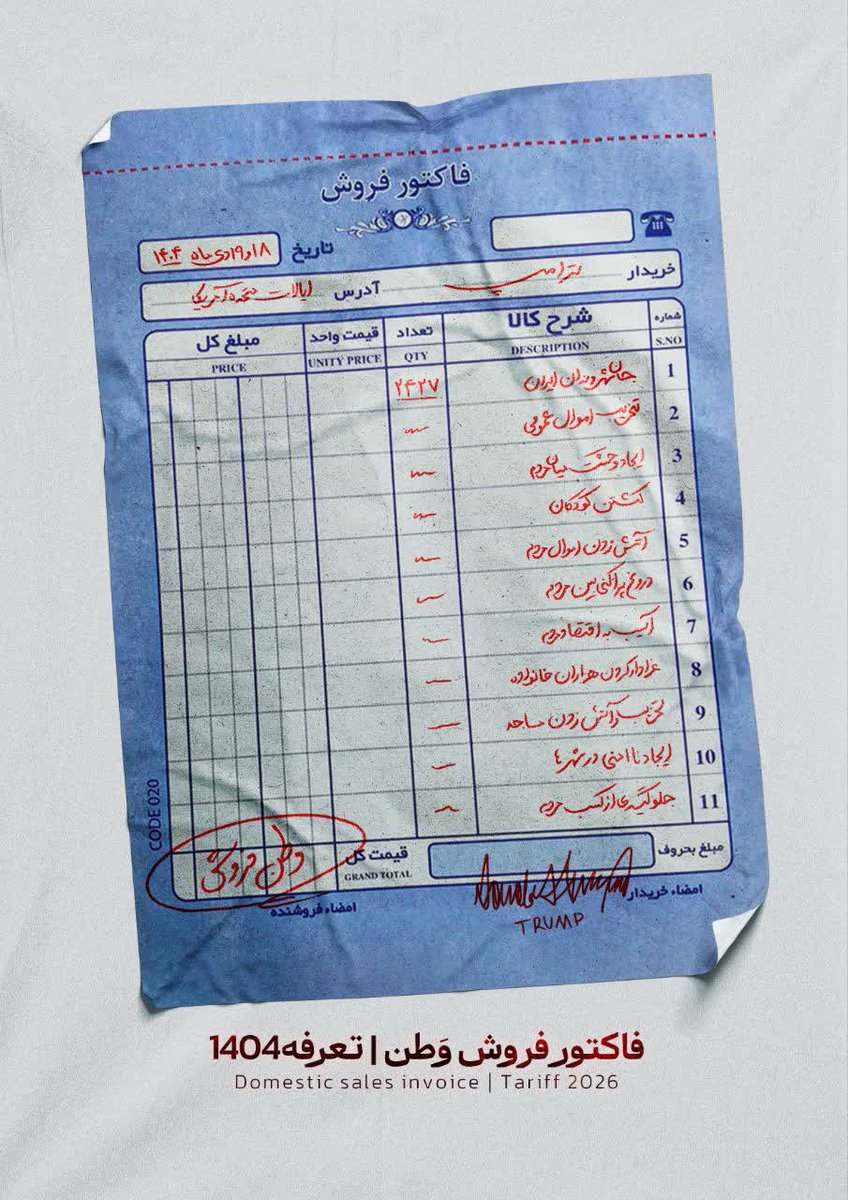 فاکتور فروش
تاریخ ۱۸و۱۹دی ماه ۱۴۰۴
خریدار ترامپ
آدرس ایالات متحده آمریکا
شماره شرح کالا تعداد قیمت واحد مبلغ کل
S.NO DESCRIPTION QTY UNITY PRICE PRICE
1 جان شهروندان ایران ۲۴۲۷
2 تخریب اموال عمومی
3 ایجاد وحشت میان مردم
4 کشتن کودکان
5 آتش زدن اموال مردم
6 دروغ پراکنی بین مردم
7 آسیب به اقتصاد مردم
8 عزادار کردن هزاران خانواده
9 تخریب و آتش زدن مساجد
10 ایجاد ناامنی در شهرها
11 جلوگیری از کسب مردم
CODE 020
مبلغ بحروف
قیمت کل وطن فروشی
GRAND TOTAL
امضاء خریدار
امضاء فروشنده
TRUMP
فاکتور فروش وَطن | تعرفه1404
Domestic sales invoice | Tariff 2026